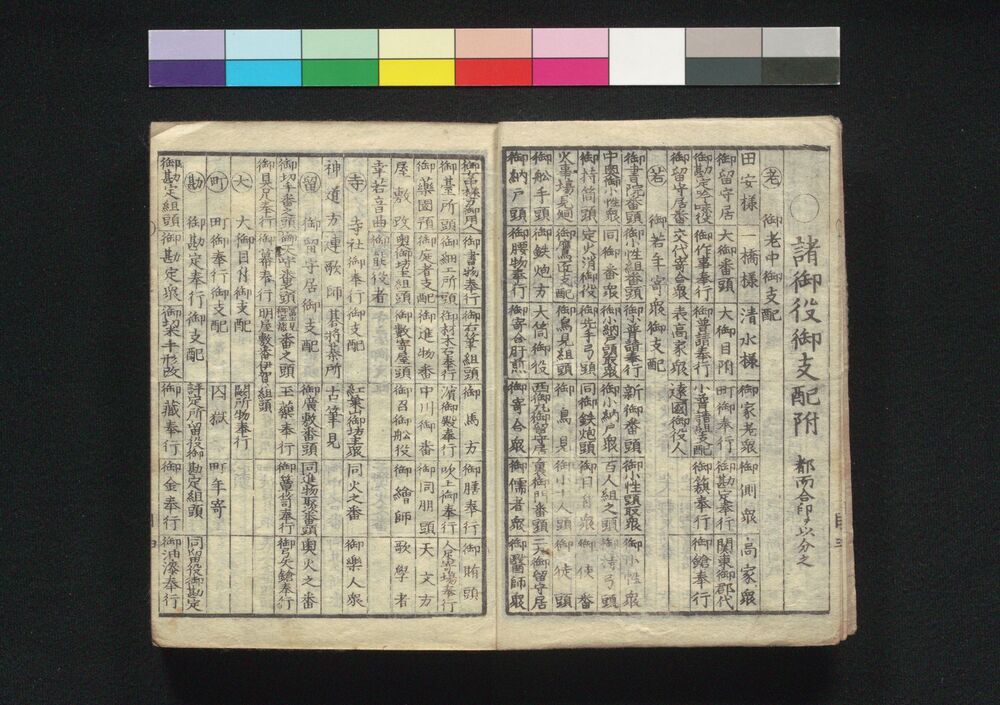 諸御役御支配附 都而合印ヲ以分之
老 御老中御支配
田安様 一橋様 清水様 御家老衆 御側衆 高家衆
御留守居 大御番頭 大御目附 町御奉行 御勘定奉行 関東御郡代
御勘定吟味役 御作事奉行 御普請奉行 小普請支配 御籏奉行 御鎗奉行
御留守居番 交代寄合衆 表高家衆 遠國御役人
若 御若年寄衆御支配
御書院番頭 御小性組番頭 御小普請奉行 新御番頭 御小性頭取衆 御小性
中奥御小性衆 同御番衆 御小納戸頭取衆 御小納戸衆 百人組之頭 御持弓頭
御持筒頭 定火消御役 御先手弓頭 同御鉄炮頭 御目付衆 御使番
火事場見廻 御鷹匠支配 御鳥見組頭 御鳥見 御小十人頭 御徒頭
御舩手頭 御鉄炮方 大筒御役 西御丸御留守居 裏御門番頭 三丸御留守居
御納戸頭 御腰物奉行 御寄合肝煎 御寄合衆 御儒者衆 御醫師衆
御簾中様方御用人 御書物奉行 御右筆組頭 御馬方 御膳奉行 御賄頭
御臺所頭 御細工所頭 御材木石奉行 濱御殿奉行 吹上御奉行 人足寄場奉行
御藥園預 御庭者支配 御進物番 中川御番 御同朋頭 天文方
屋敷改 奥御坊主組頭 御數寄屋頭 御召御舩役 御繪師 歌學者
幸若音曲 御能役者
寺 寺社御奉行御支配 紅葉山御坊主衆 同火之番 御樂人衆
神道方 連歌師 碁将棊所 古筆見
留 御留守居御支配 御廣敷番頭 同進物取次番頭 奥火之番
御切手番之頭 御天守番之頭 番之頭 玉藥奉行 御簞笥奉行 御弓矢鎗奉行
御具足奉行 御幕奉行 明屋敷番伊賀組頭
大 大御目付御支配 闕所物奉行
町 町御奉行御支配 囚獄 町年寄
勘 御勘定奉行御支配 評定所留役御勘定組頭 同留役御勘定
御勘定組頭 御勘定衆 御切米手形改 御藏奉行 御金奉行 御油漆奉行